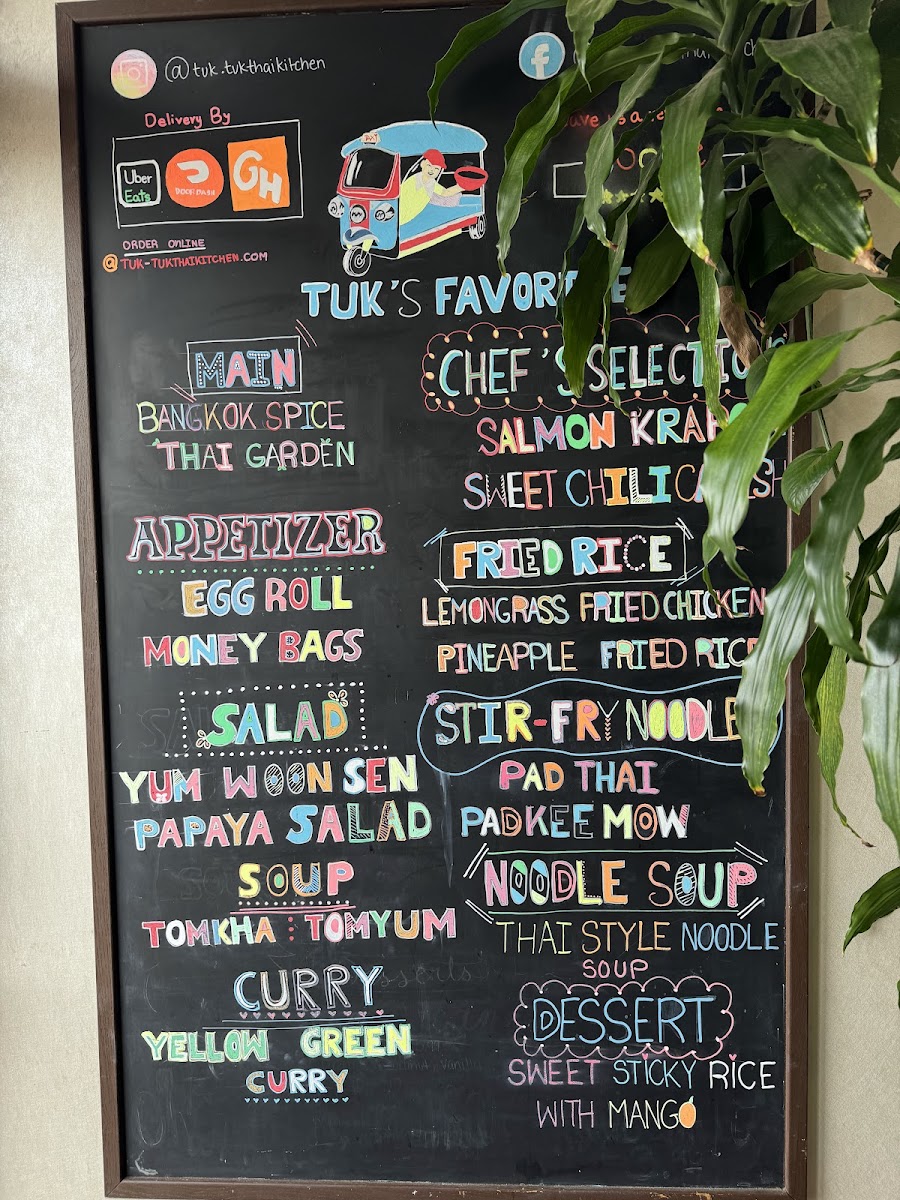 @tuk.tukthaikitchen
Delivery By
Uber
Eats
DOORDASH
GH
ORDER ONLINE
@TUK-TUKTHAIKITCHEN.COM
TAXI
TUK'S
MAIN
BANGKOK SPICE
THAI GARDEN
APPETIZER
EGG ROLL
MONEY BAGS
SALAD
YUM WOON SEN
PAPAYA SALAD
SOUP
TOMKHA : TOMYUM
CURRY
YELLOW GREEN
CURRY
CHEF'S
SALMON
SWEET CHILI
FRIED RICE
LEMONGRASS FRIED CHICKEN
PINEAPPLE FRIED RICE
STIR-FRY NOODLE
PAD THAI
PADKEE MOW
NOODLE SOUP
THAI STYLE NOODLE
SOUP
DESSERT
SWEET STICKY RICE
WITH MANGO